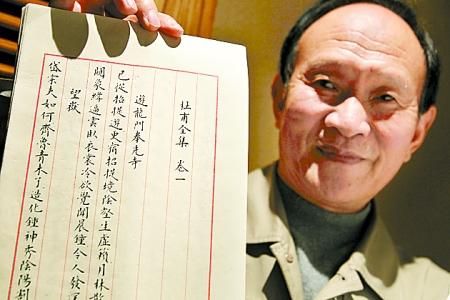 杜甫全集 卷一
遊龍門奉先寺
已從招提遊更宿招提境陰壑生虛籟月林散
闕象緯逼雲臥衣裳冷欲覺聞晨鐘令人發
望嶽
岱宗夫如何齊魯青未了造化鍾神秀陰陽割